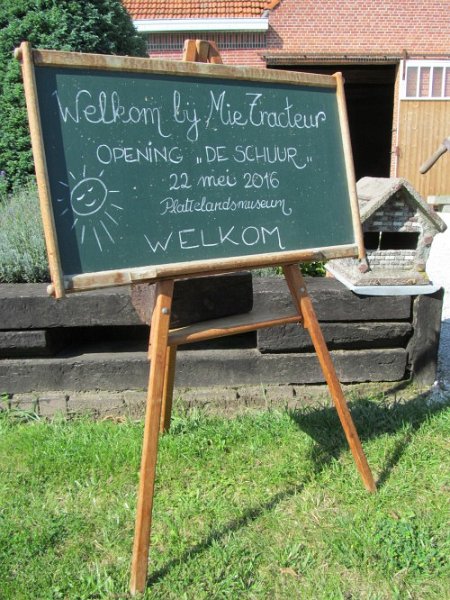 Welkom bij Mie Tracteur
OPENING „DE SCHUUR"
22 mei 2016
Plattelandsmuseum
WELKOM